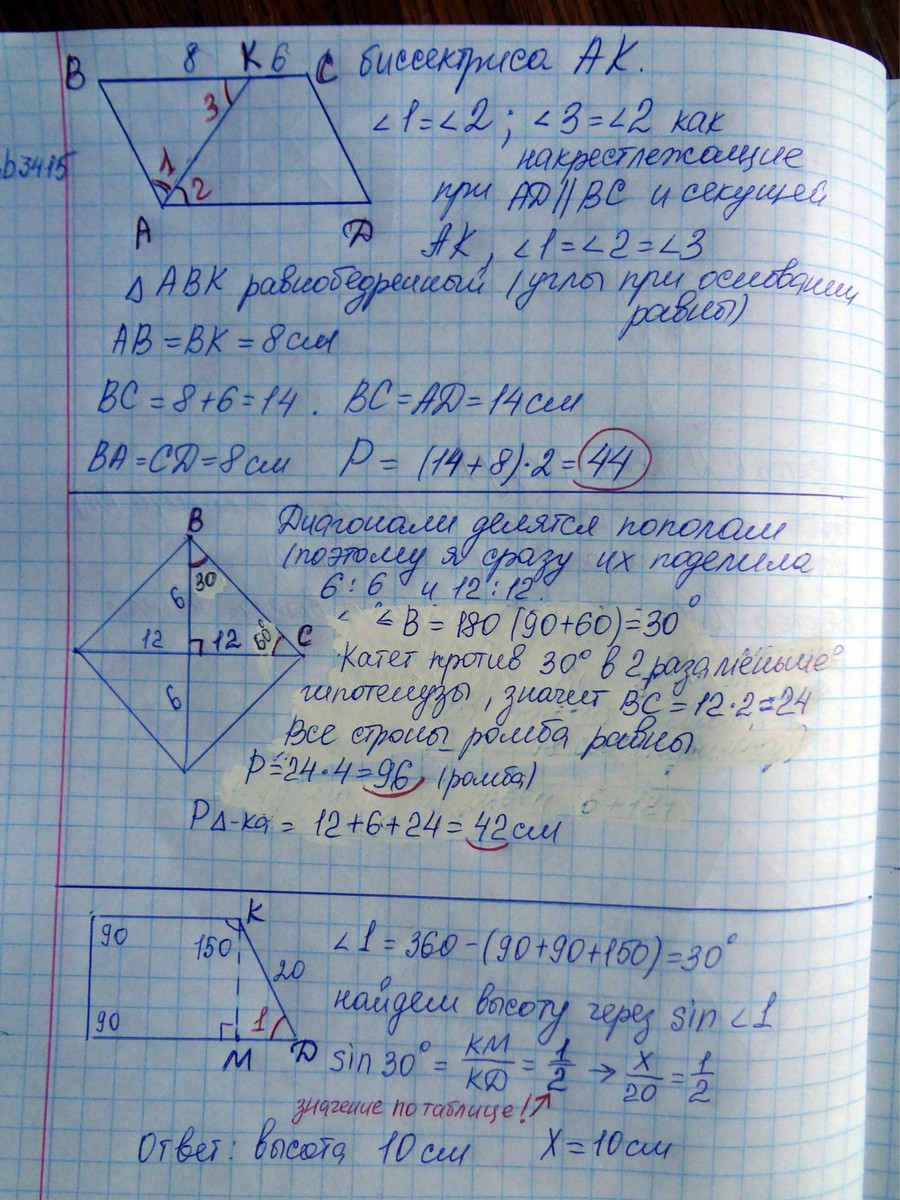 B 8 K 6 C биссектриса AK.
3
∠1=∠2 ; ∠3=∠2 как
накрестлежащие
b3415
1 2
при AD||BC и секущей
A D
AK, ∠1=∠2=∠3
△ ABK равнобедренный (углы при основании
равны)
AB = BK = 8см
BC = 8+6=14 . BC=AD=14см
BA=CD=8см P = (14+8)·2=44
B
Диагонали делятся пополам
(поэтому я сразу их поделила
6 30
6 : 6 и 12 : 12.
∠B = 180 (90+60)=30°
12 12 60° C
Катет против 30° в 2 раза меньше
гипотенузы, значит BC = 12·2=24
6
Все строны ромба равны
P=24·4=96 (ромба)
P△-ка = 12+6+24=42см
K
90 150
∠1 = 360-(90+90+150)=30°
20
найдем высоту через sin ∠1
90 1
M D
sin 30° = KM/KD = 1/2 → x/20 = 1/2
значение по таблице!
Ответ: высота 10см X=10см